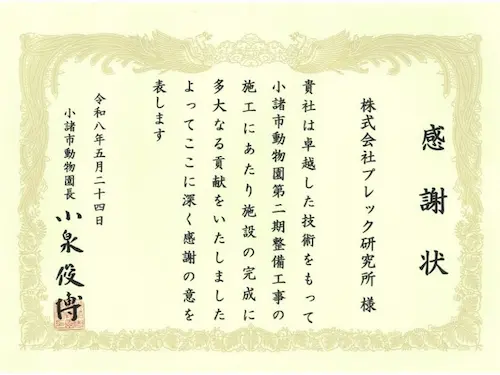 感謝状
株式会社プレック研究所 様
貴社は卓越した技術をもって
小諸市動物園第二期整備工事の
施工にあたり施設の完成に
多大なる貢献をいたしました
よってここに深く感謝の意を
表します
令和八年五月二十四日
小諸市動物園長 小泉俊博